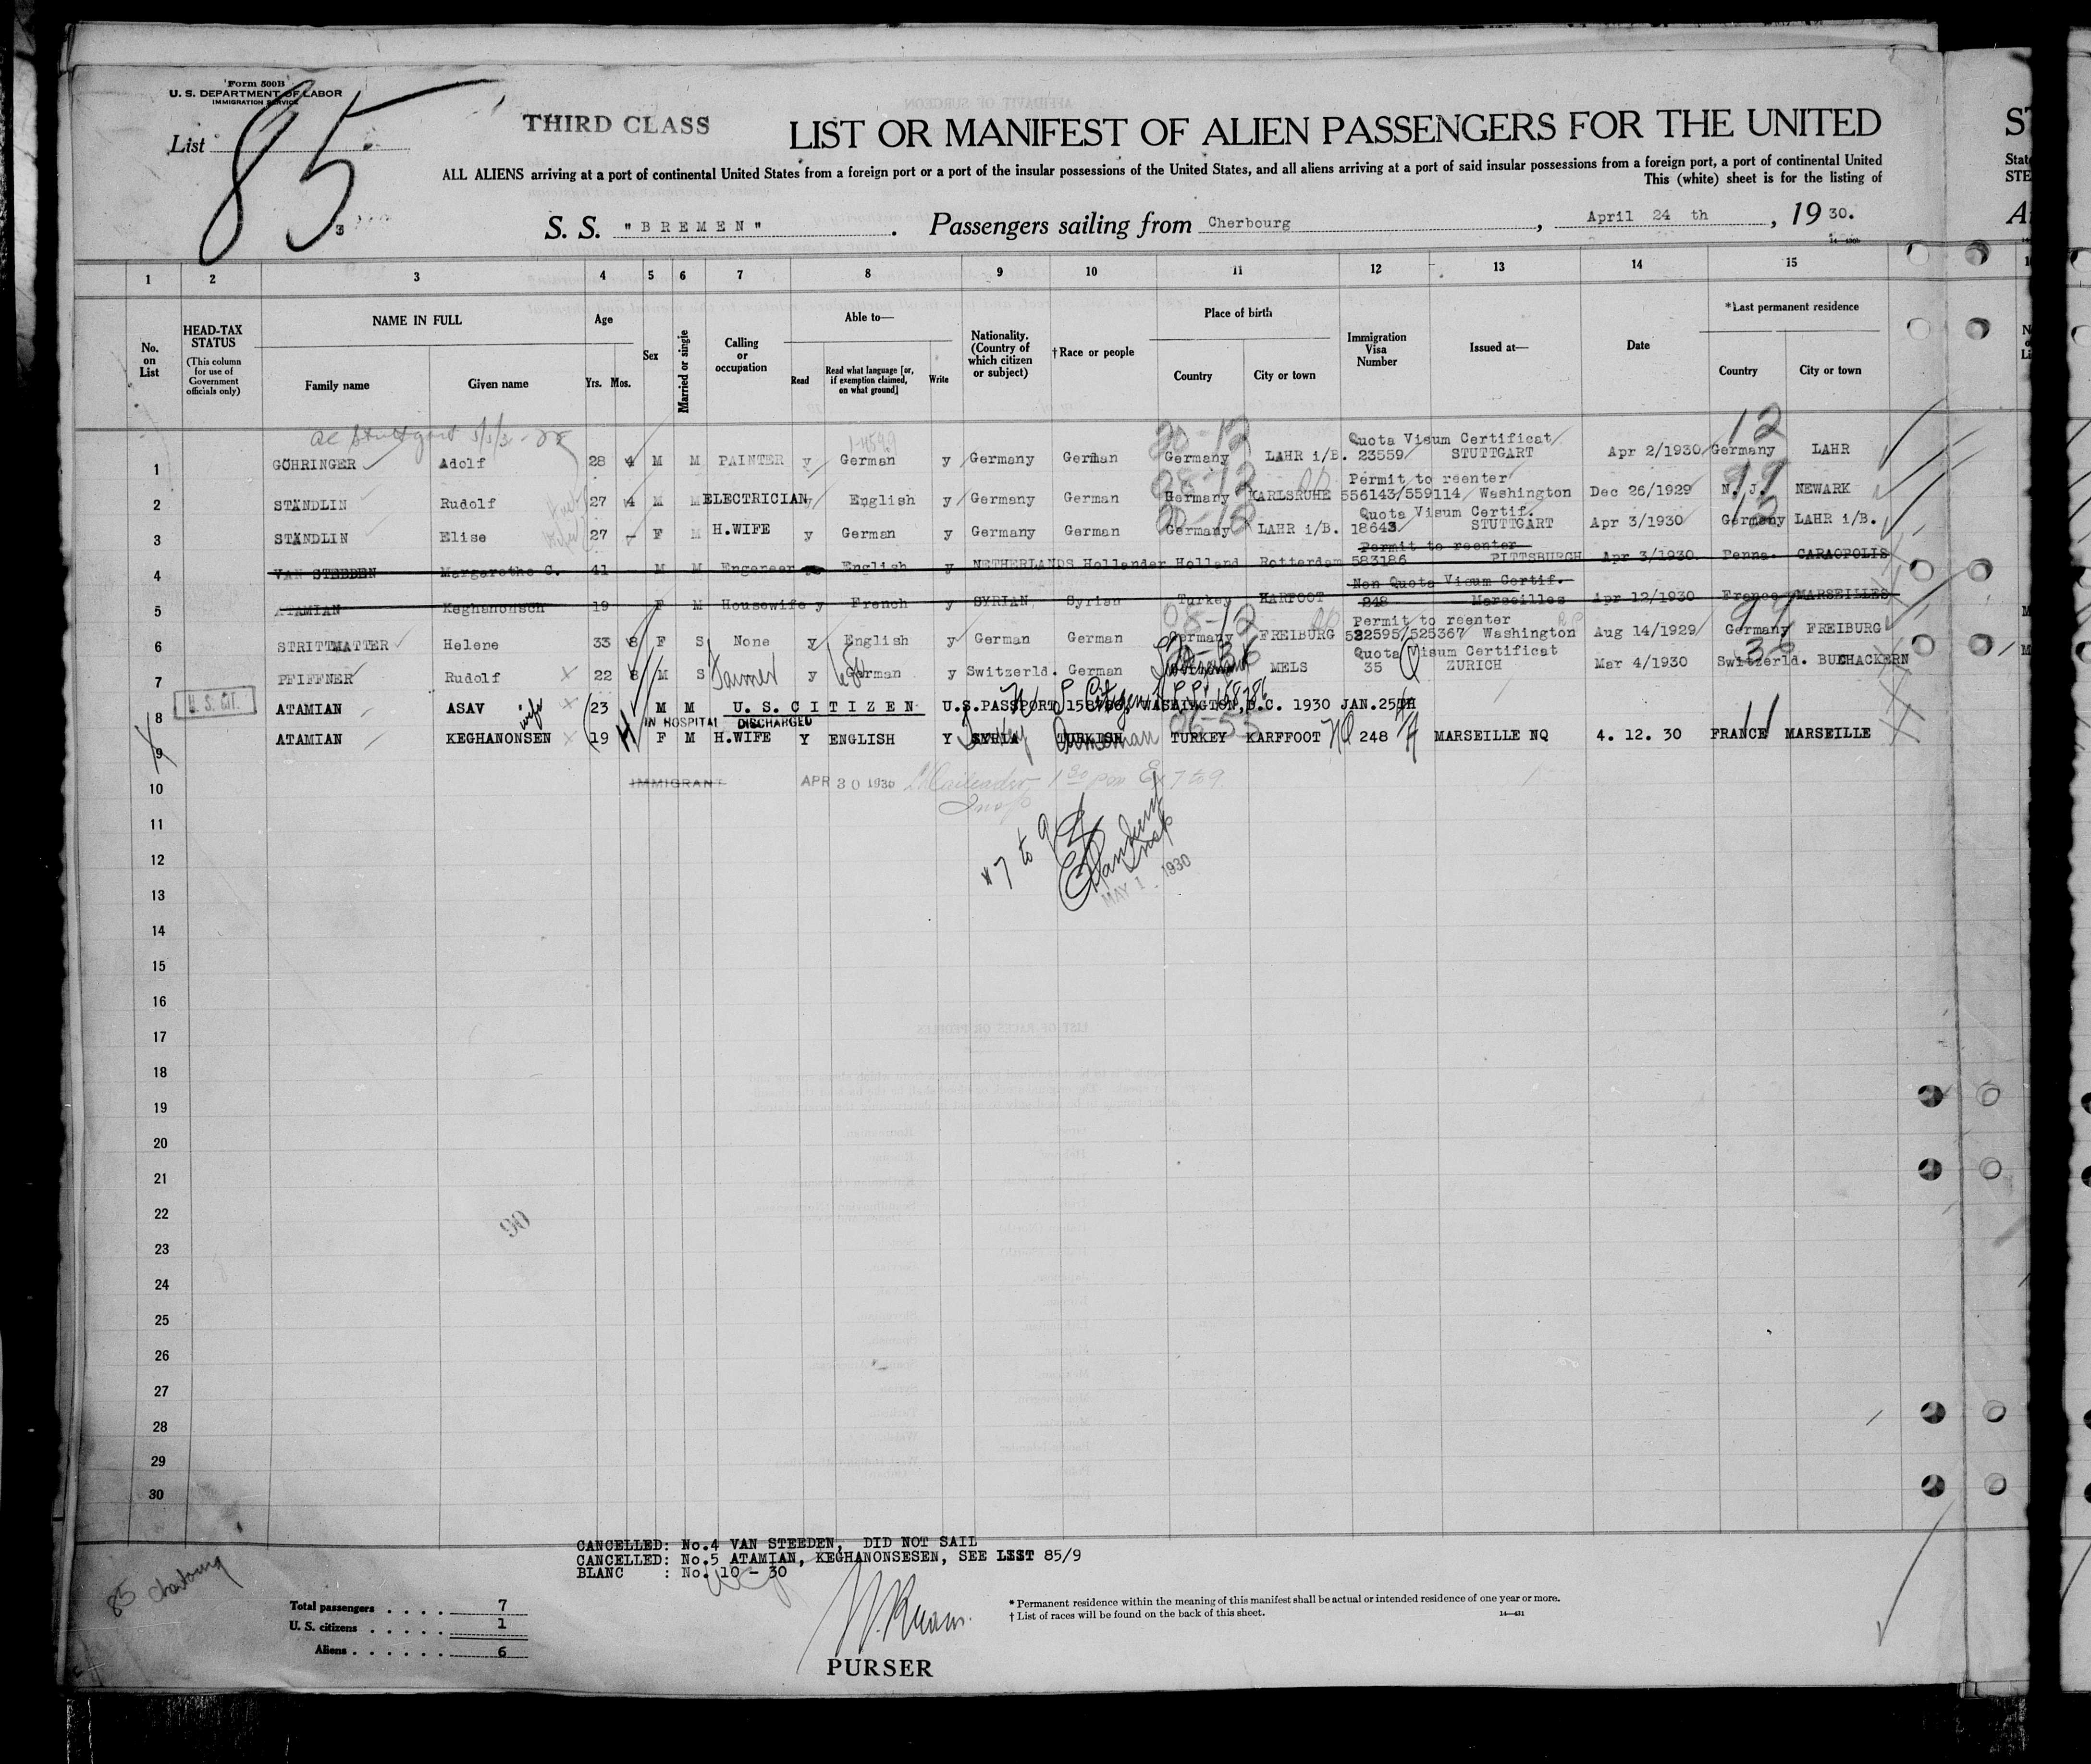 Form 500B
U. S. DEPARTMENT OF LABOR
IMMIGRATION SERVICE
List 85
3
THIRD CLASS
LIST OR MANIFEST OF ALIEN PASSENGERS FOR THE UNITED
ST
ALL ALIENS arriving at a port of continental United States from a foreign port or a port of the insular possessions of the United States, and all aliens arriving at a port of said insular possessions from a foreign port, a port of continental United
This (white) sheet is for the listing of
State
STE
S. S. "BREMEN". Passengers sailing from Cherbourg, April 24 th, 1930.
1 2 3 4 5 6 7 8 9 10 11 12 13 14 15
No. on List
HEAD-TAX STATUS (This column for use of Government officials only)
NAME IN FULL
Family name Given name
Age
Yrs. Mos.
Sex
Married or single
Calling or occupation
Able to—
Read Read what language [or, if exemption claimed, on what ground] Write
Nationality. (Country of which citizen or subject)
†Race or people
Place of birth
Country City or town
Immigration Visa Number
Issued at—
Date
*Last permanent residence
Country City or town
20-12 Quota Visum Certificat 12
1 GÖHRINGER Adolf 28 4 M M PAINTER y German y Germany German Germany LAHR i/B. 23559 STUTTGART Apr 2/1930 Germany LAHR
Permit to reenter
2 STÄNDLIN Rudolf 27 4 M M ELECTRICIAN y English y Germany German Germany KARLSRUHE 556143/559114 Washington Dec 26/1929 N.J. NEWARK
Quota Visum Certif.
3 STÄNDLIN Elise 27 - F M H.WIFE y German y Germany German Germany LAHR i/B. 18643 STUTTGART Apr 3/1930 Germany LAHR i/B.
Permit to reenter
4 VAN STEEDEN Margarethe C. 41 M M Engeneer English y NETHERLANDS Hollander Holland Rotterdam 583186 PITTSBURGH Apr 3/1930 Penna. CARAOPOLIS
Non Quota Visum Certif.
5 ATAMIAN Keghanonsen 19 F M Housewife y French y SYRIAN Syrian Turkey KARFOOT 248 Marseilles Apr 12/1930 France MARSEILLES
Permit to reenter
6 STRITTMATTER Helene 33 8 F S None y English y German German Germany FREIBURG 522595/525367 Washington Aug 14/1929 Germany FREIBURG
Quota Visum Certificat
7 PFIFFNER Rudolf 22 8 M S Farmer y German y Switzerld. German MELS 35 ZURICH Mar 4/1930 Switzerld. BUCHACKERN
U. S. CIT.
8 ATAMIAN ASAV 23 M M U.S.CITIZEN U.S.PASSPORT 158786, WASHINGTON, D.C. 1930 JAN.25TH
wife
IN HOSPITAL DISCHARGED
9 ATAMIAN KEGHANONSEN 19 F M H.WIFE Y ENGLISH Y SYRIA TURKISH TURKEY KARFFOOT 248 MARSEILLE NQ 4. 12. 30 FRANCE MARSEILLE
10 IMMIGRANT APR 30 1930
11
7 to 9
12
Insp
MAY 1 1930
13
14
15
16
17
18
19
20
21
22
90
23
24
25
26
27
28
29
30
CANCELLED: No.4 VAN STEEDEN, DID NOT SAIL
CANCELLED: No.5 ATAMIAN, KEGHANONSESEN, SEE LIST 85/9
BLANC : No. 10 - 30
85 Cherbourg
Total passengers . . . . 7
U. S. citizens . . . . . 1
Aliens . . . . . . 6
* Permanent residence within the meaning of this manifest shall be actual or intended residence of one year or more.
† List of races will be found on the back of this sheet.
14—431
PURSER